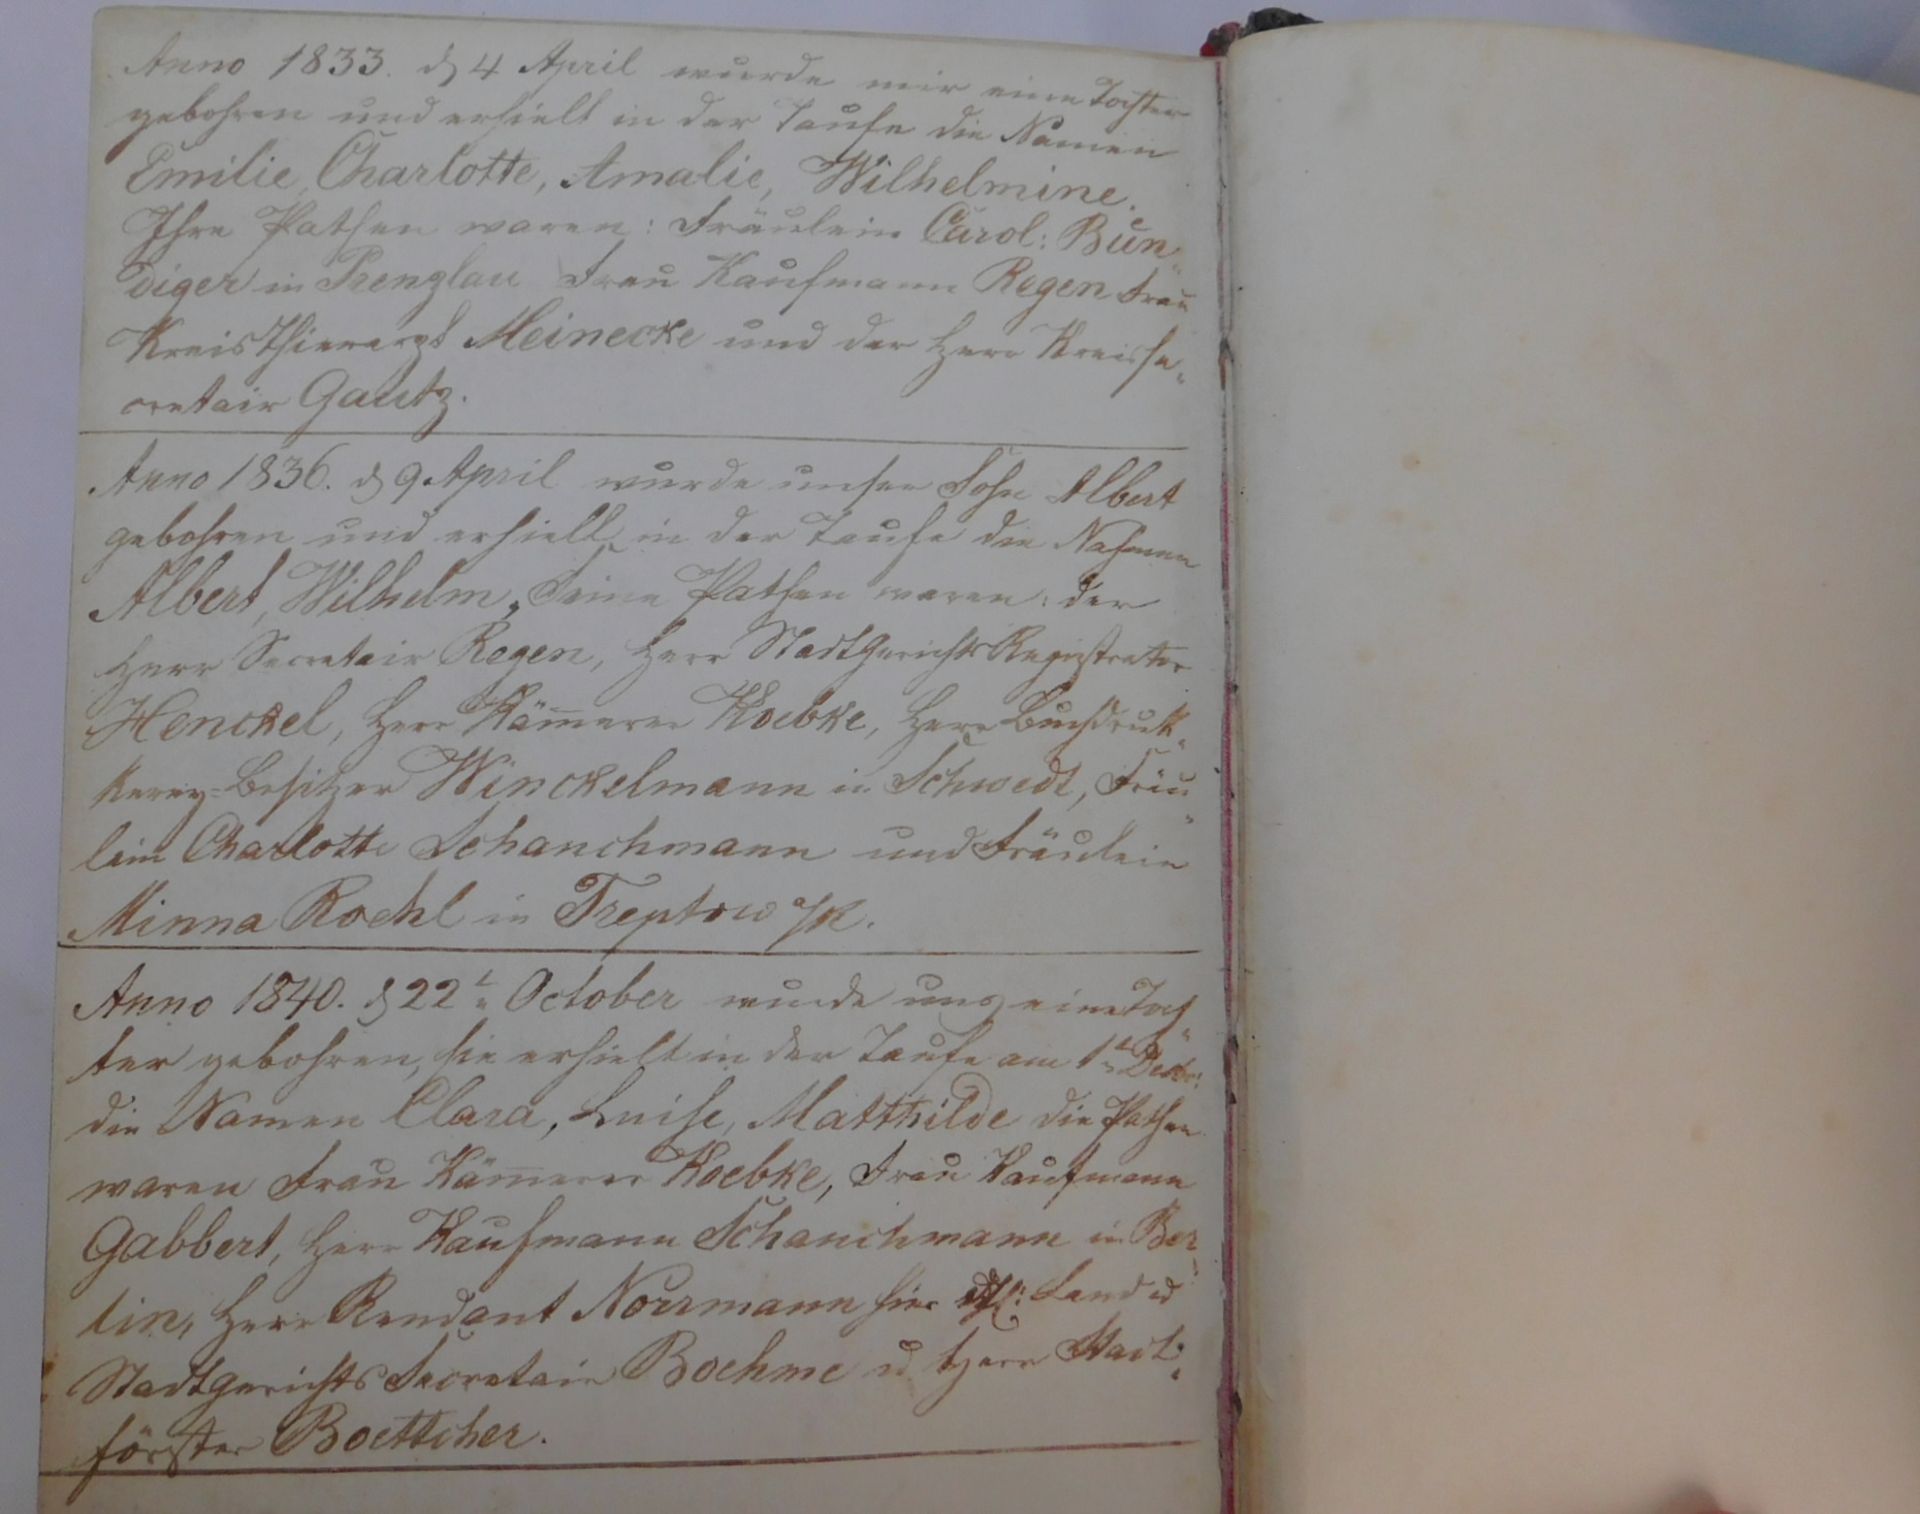 Anno 1833. d 4 April wurde mir eine Tochter
gebohren und erhielt in der Taufe die Namen
Emilie, Charlotte, Amalie, Wilhelmine.
Ihre Pathen waren: Fräulein Carol: Bün-
diger in Prenzlau Frau Kaufmann Regen Frau
Kreisthierarzt Meinecke und der Herr Kreisse-
cretair Gautz.
Anno 1836. d 9 April wurde unser Sohn Albert
gebohren und erhielt in der Taufe die Nahmen
Albert, Wilhelm, Seine Pathen waren: der
Herr Secretair Regen, Herr Stadtgerichts Registrator
Henckel, Herr Käm̄erer Koebke, Herr Buchdruk-
kerey-Besitzer Winckelmann in Schwedt, Fräu-
lein Charlotte Schanchmann und Fräulein
Minna Roehl in Treptow a/R.
Anno 1840. d 22t October wurde uns eine Toch-
ter gebohren, sie erhielt in der Taufe am 1t Decbr:
die Namen Clara, Luise, Matthilde die Pathen
waren Frau Käm̄erer Koebke, Frau Kaufmann
Gabbert, Herr Kaufmann Schanchmann in Ber-
lin, Herr Rendant Norrmann hier Land u
Stadtgerichts Secretair Boehme u Herr Stadt-
förster Boettcher.